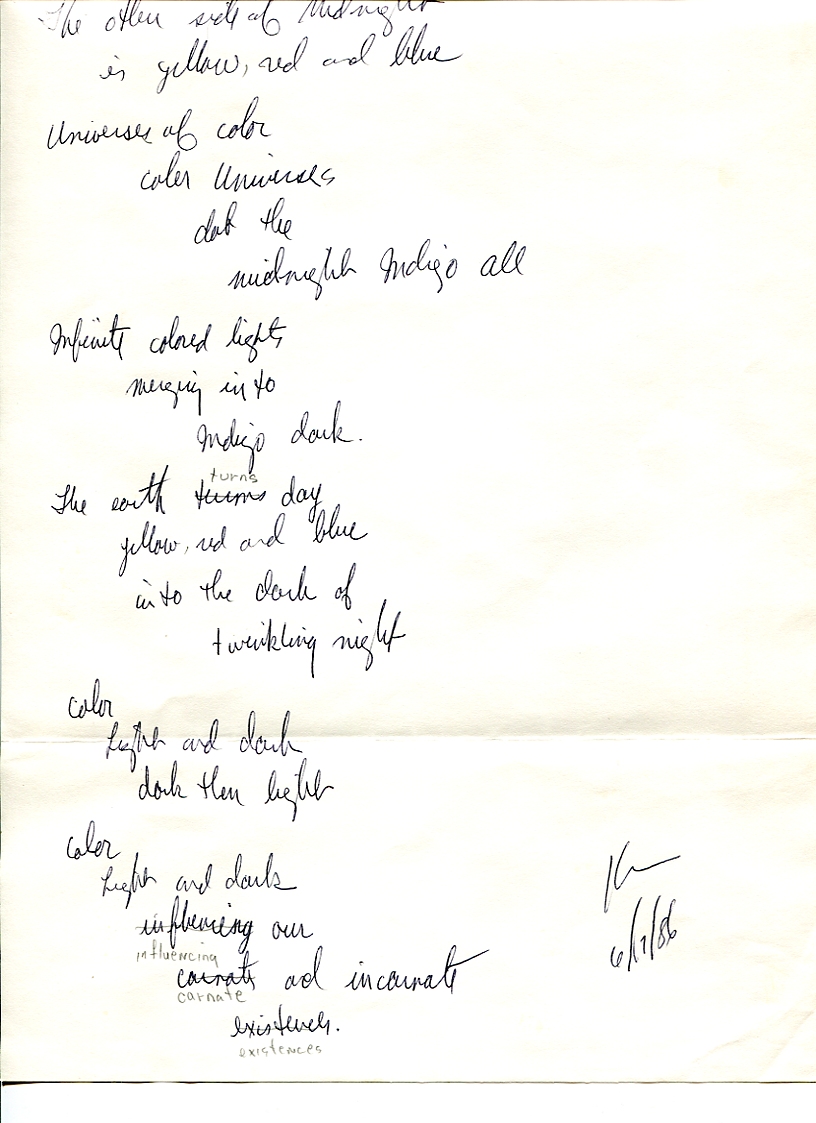 The other side of Midnight
is yellow, red and blue
Universes of color
color Universes
dot the
midnight Indigo all
Infinite colored lights
merging into
Indigo dark.
turns
The earth turns day
yellow, red and blue
into the dark of
twinkling night
color
Light and dark
dark then light
color
Light and dark
influencing our
influencing
carnate and incarnate
carnate
existences.
existences
6/17/86